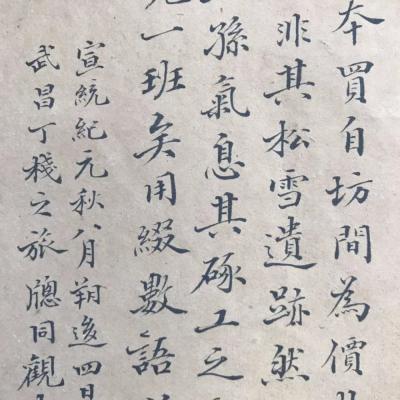 本買自坊間為價
非其松雪遺跡然
孫氣息其琢工之
一班矣用綴數語
宣統紀元秋八月朔後四日
武昌丁棧之旅牕同觀